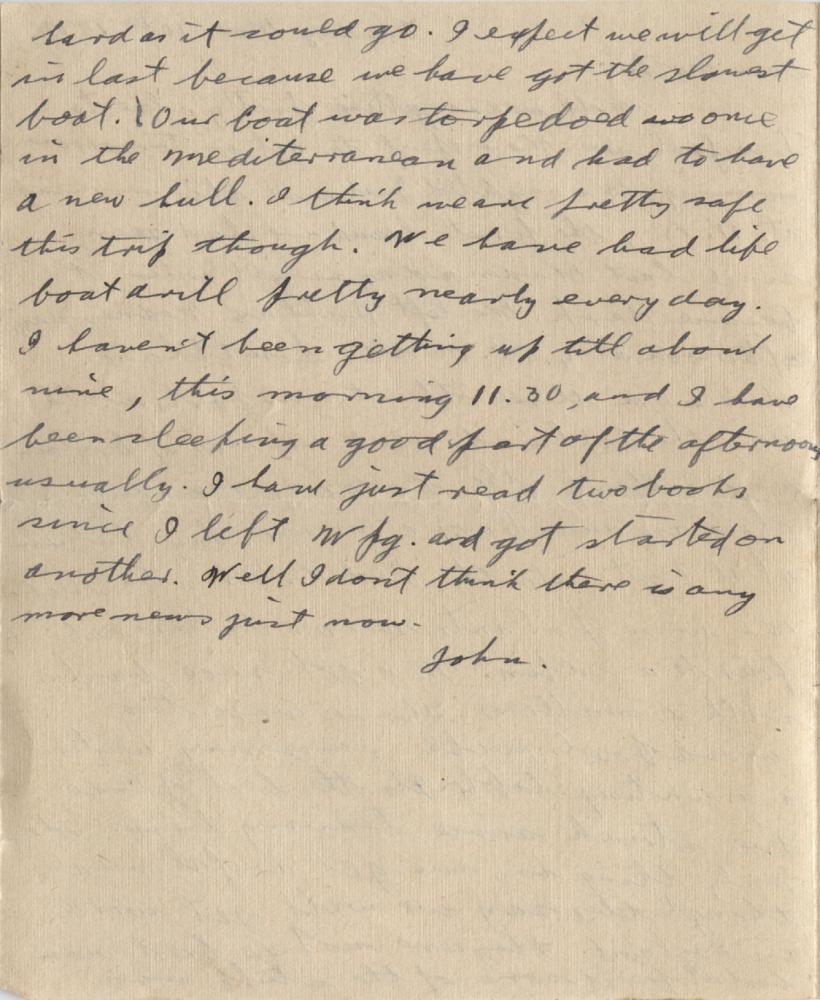 hard as it could go. I expect we will get
in last because we have got the slowest
boat. \ Our boat was torpedoed once
in the mediterranean and had to have
a new hull. I think we are pretty safe
this trip though. We have had life
boat drill pretty nearly every day.
I haven't been getting up till about
nine, this morning 11.30, and I have
been sleeping a good part of the afternoons
usually. I have just read two books
since I left Wpg. and got started on
another. Well I don't think there is any
more news just now.
John.